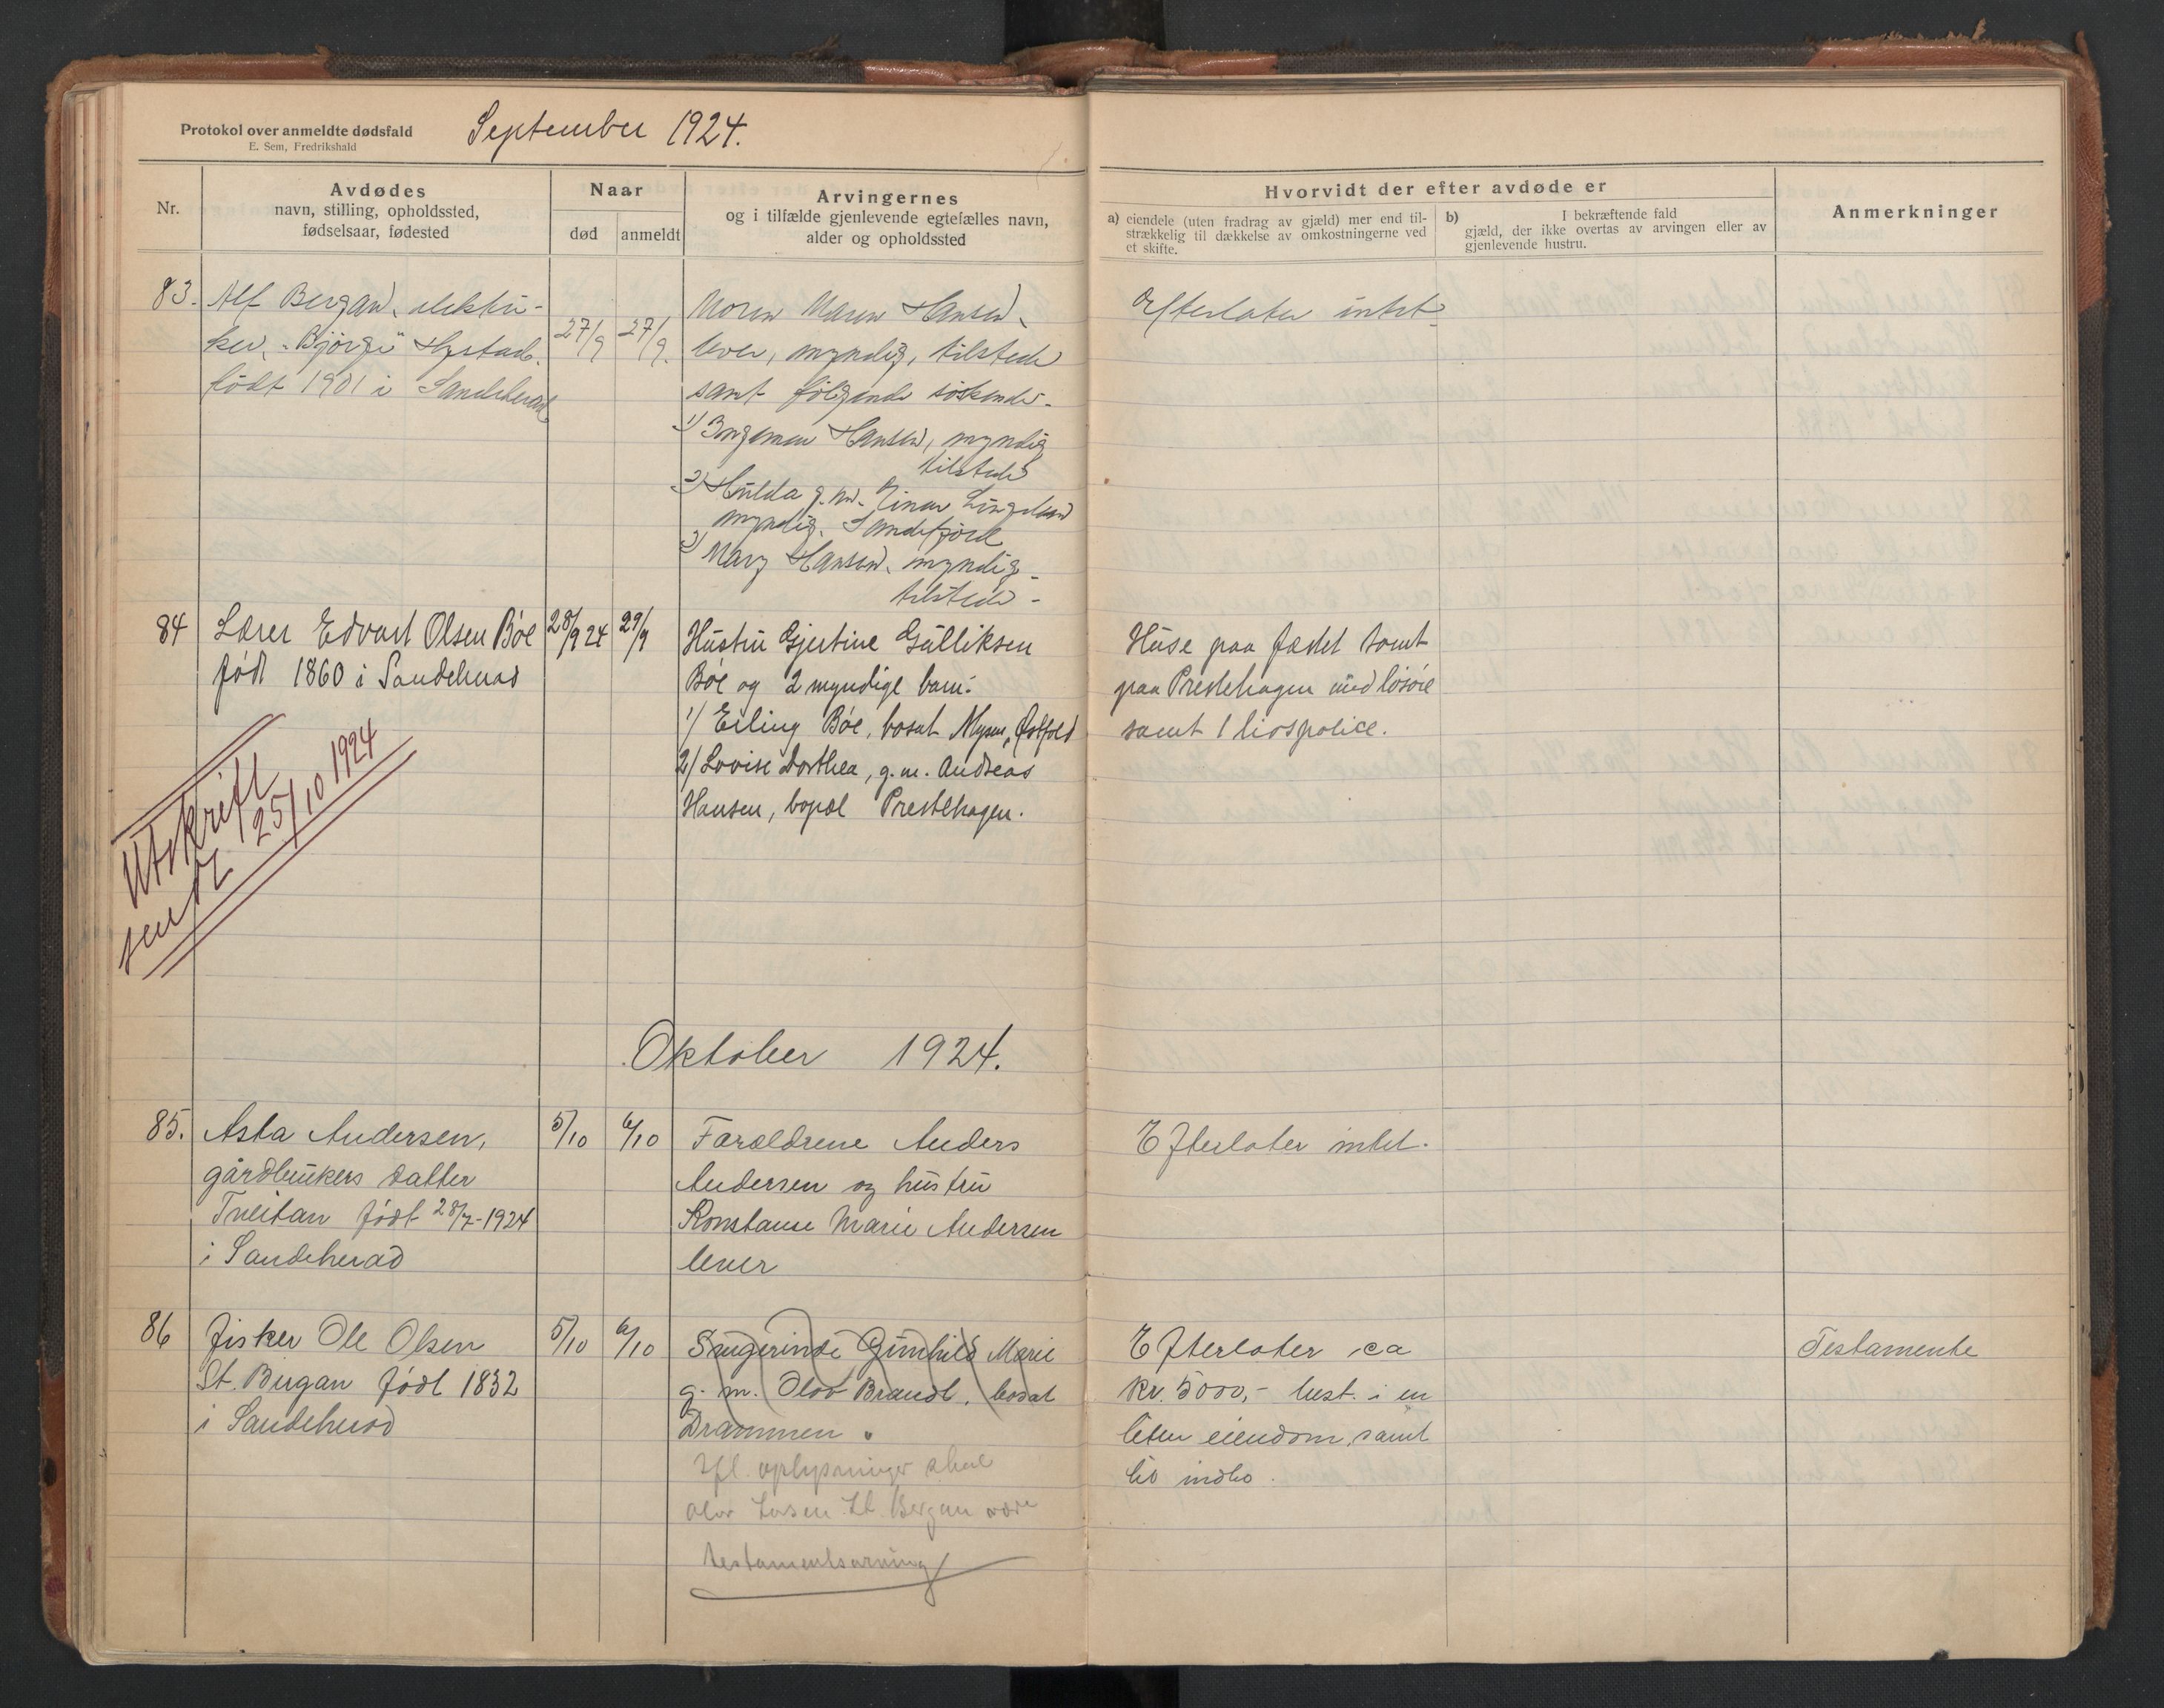 Protokol over anmeldte dødsfald
E. Sem, Fredrikshald
September 1924.
Nr.
Avdødes
navn, stilling, opholdssted,
fødselsaar, fødested
Naar
død
anmeldt
Arvingernes
og i tilfælde gjenlevende egtefælles navn,
alder og opholdssted
Hvorvidt der efter avdøde er
a) eiendele (uten fradrag av gjæld) mer end til-
strækkelig til dækkelse av omkostningerne ved
et skifte.
b) I bekræftende fald
gjæld, der ikke overtas av arvingen eller av
gjenlevende hustru.
Anmerkninger
83. Alf Bergan, elektri-
ker, "Bjørge" Hystad.
født 1901 i Sandeherad
27/9
27/9.
Moren Maren Hansen,
lever, myndig, tilstede
samt følgende søskende.
1) Ingeman Hansen, myndig
tilstede
2) Hulda g. m. Einar
myndig. Sandefjord
3) Mary Hansen, myndig
tilstede -
Efterlater intet
84 Lærer Edvart Olsen Bøe
født 1860 i Sandeherad
28/9 24
29/9
Hustru Gjertine Gulliksen
Bøe og 2 myndige barn:
1/ Erling Bøe, bosat Mysen, Østfold
2/ Lovise Dorthea, g. m. Andreas
Hansen, bopæl Prestehagen.
Huse paa fæstet tomt
paa Prestehagen med løsøre
samt 1 livspolice.
Utskrift
sendt 25/10 1924
Oktober 1924.
85. Asta Andersen,
gårdbrukers datter
Tveitan født 28/7-1924
i Sandeherad
5/10
6/10
Forældrene Anders
Andersen og hustru
Konstanse Marie Andersen
lever
Efterlater intet.
86 Fisker Ole Olsen
St. Bergan født 1832
i Sandeherad
5/10
6/10
Gunhild Marie
g. m. Olav Brandt, bosat
Drammen.
Ifl. oplysninger skal
Olav Larsen St. Bergan være
testamentsarving
Efterlater ca
kr. 5000,- best. i en
liten eiendom, samt
lit indbo.
Testamente